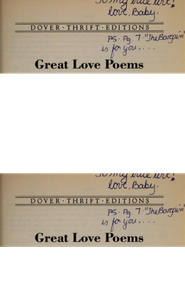 To my true love!
love, Baby.
DOVER · THRIFT · EDITIONS
PS. Pg. 7 "The Bargain"
is for you....
Great Love Poems
To my true love!
love, Baby.
DOVER · THRIFT · EDITIONS
PS. Pg. 7 "The Bargain"
is for you....
Great Love Poems